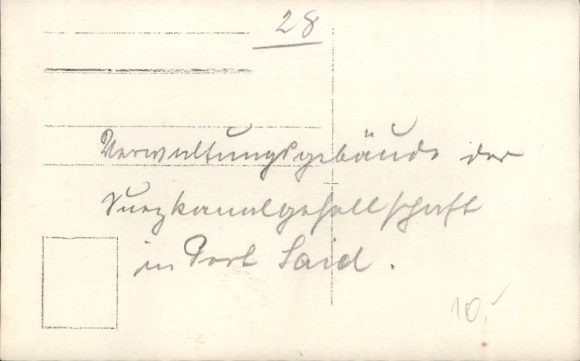 28
Verwaltungsgebäude der
Suezkanalgesellschaft
in Port Said.
10.-